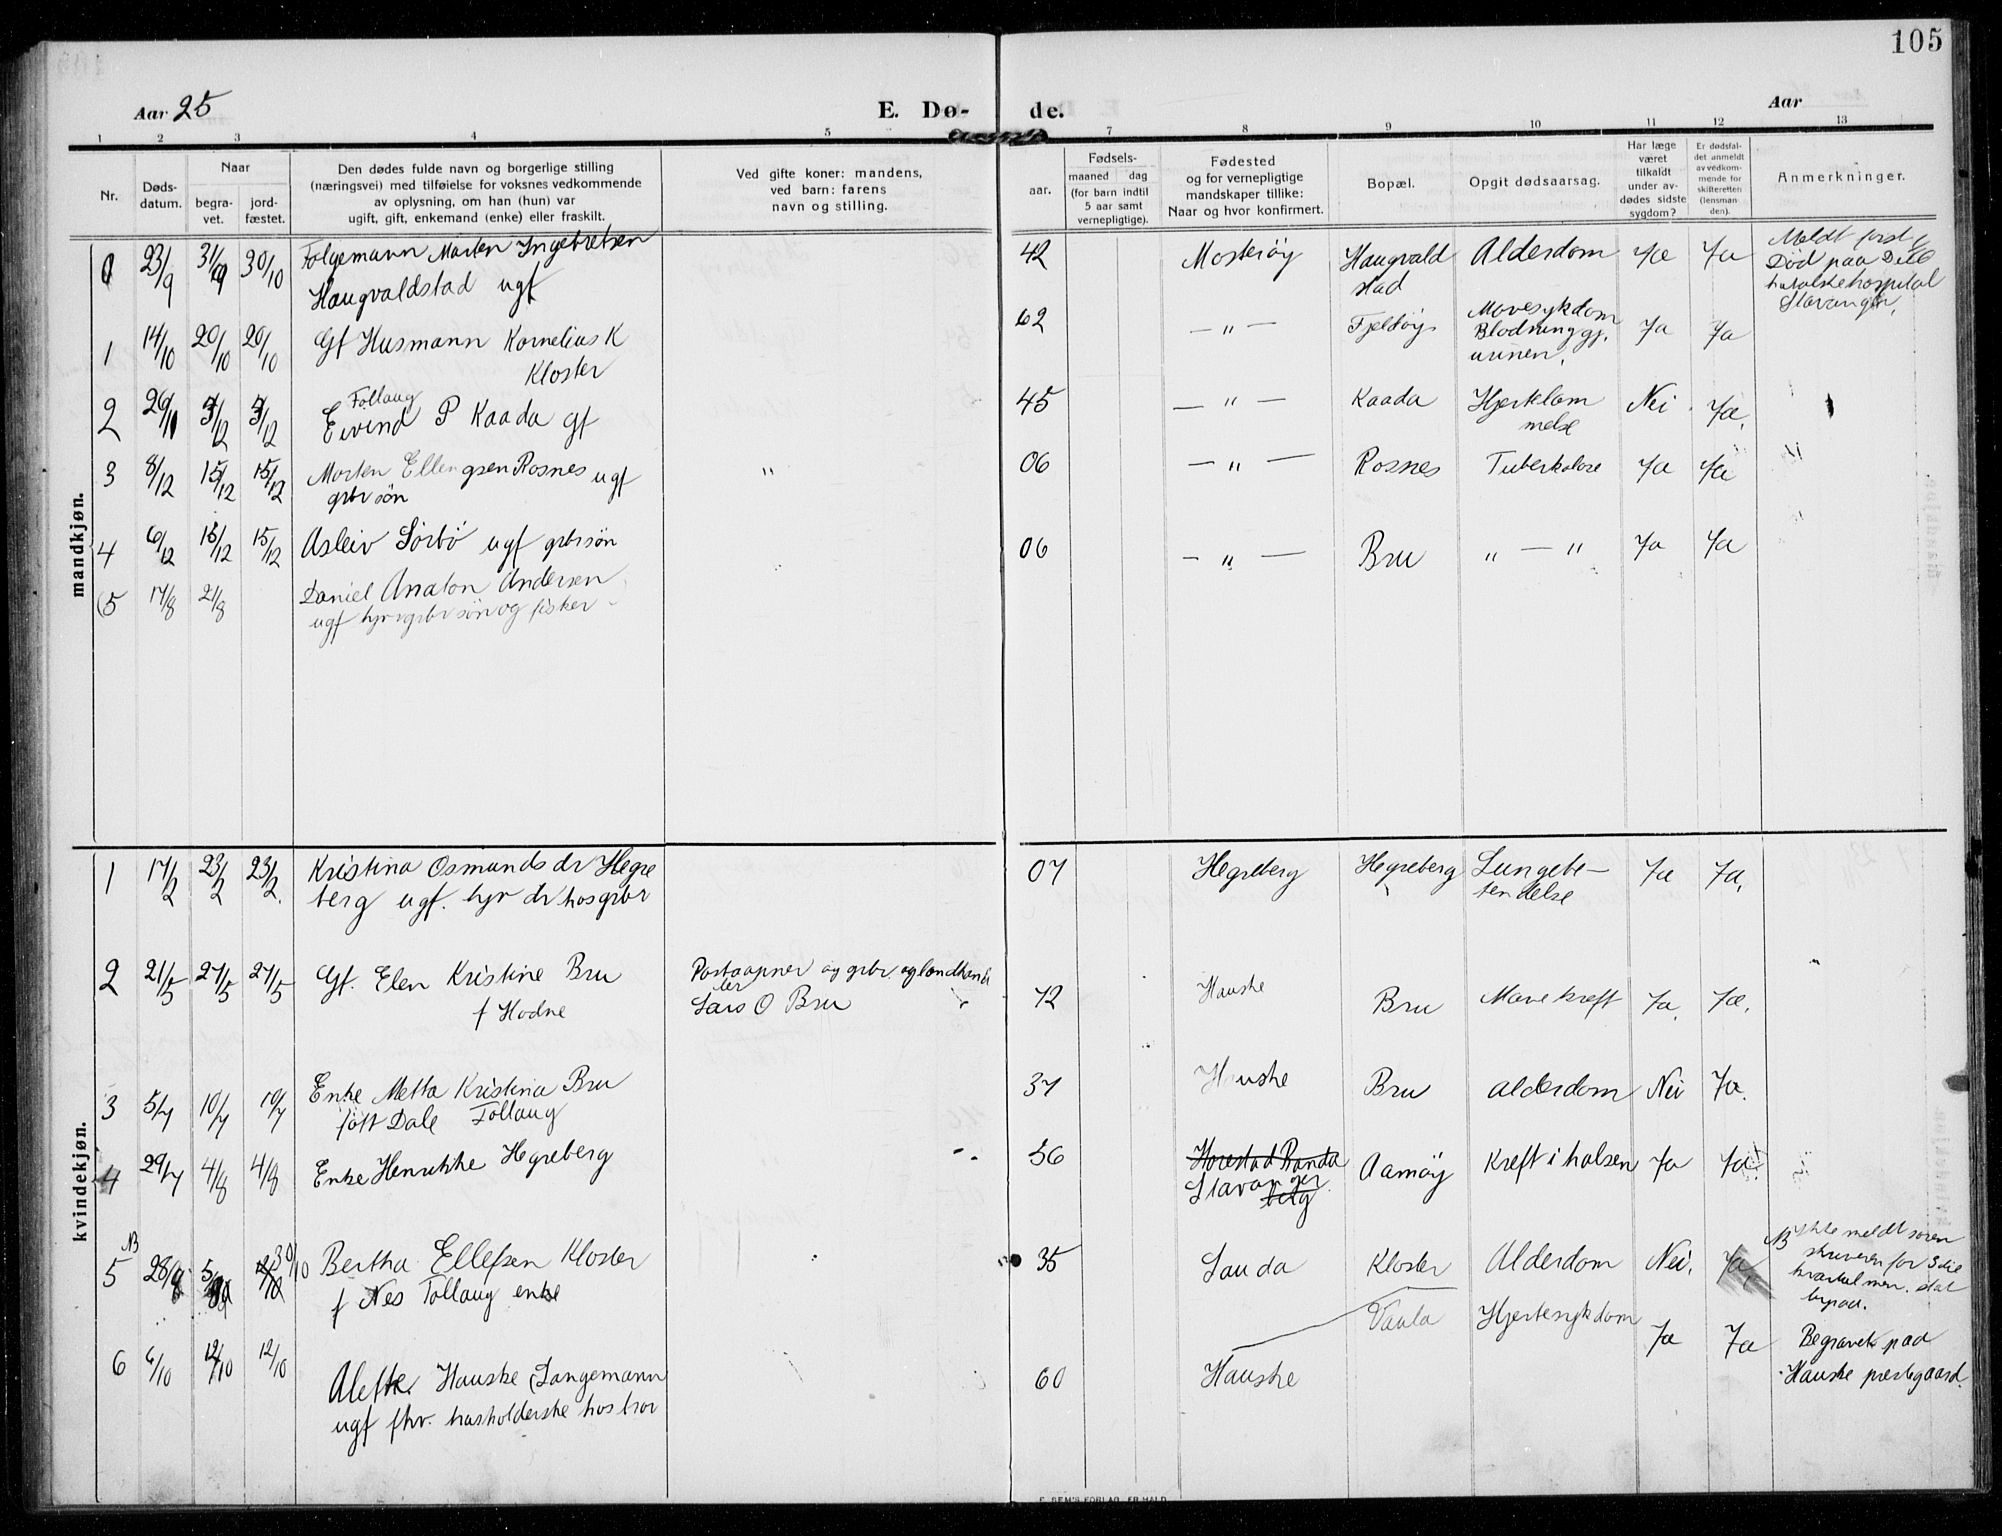 105
Aar 25
E. Dø-
de.
Aar
1 2 3 4 5 7 8 9 10 11 12 13
Nr.
Døds-
datum.
Naar
begra-
vet.
jord-
fæstet.
Den dødes fulde navn og borgerlige stilling
(næringsvei) med tilføielse for voksnes vedkommende
av oplysning, om han (hun) var
ugift, gift, enkemand (enke) eller fraskilt.
Ved gifte koner: mandens,
ved barn: farens
navn og stilling.
aar.
Fødsels-
maaned dag
(for barn indtil
5 aar samt
vernepligtige).
Fødested
og for vernepligtige
mandskaper tillike:
Naar og hvor konfirmert.
Bopæl.
Opgit dødsaarsag.
Har læge
været
tilkaldt
under av-
dødes sidste
sygdom?
Er dødsfal-
det anmeldt
av vedkom-
mende for
skifteretten
(lensman-
den).
Anmerkninger.
mandkjøn.
23/9 30/10 Folgemann Morten Ingebretsen
Haugvaldstad ugf
42 Mosterøy Haugvald
stad
Alderdom Ja Ja
Meldt
Død paa
hospital
Stavanger.
1 14/10 20/10 20/10 Gf Husmann Kornelius K
Kloster
62 — " — Fjeldøy
Mavesykdom
Blødning gj.
urinen.
Ja Ja
2 26/11 3/12 3/12 Follaug
Eivind P Kaada gf
45 — " — Kaada Hjerklam
melse
Nei Ja.
3 8/12 15/12 15/12 Morten Ellengsen Rosnes ugf
grbr søn
"
06 — " — Rosnes Tuberkulose Ja Ja
4 6/12 15/12 15/12 Asleiv Sørbø ugf grbr søn
06 — " — Bru " — " Ja Ja
(5 17/8 21/8 Daniel Anaton Andersen
ugf hjv grbr søn og fisker
kvindekjøn.
1 17/2 23/2 23/2 Kristina Osmunds dr Hegre
berg ugf. hjv dr hos grbr
07 Hegreberg Hegreberg Lungebe-
tendelse
Ja Ja.
2 21/5 27/5 27/5 Gf. Elen Kristine Bru
f Hodne
Postaapner og grbr. og landhand
ler
Lars O Bru
72 Hauske Bru Mavekreft Ja. Ja.
3 5/7 10/7 10/7 Enke Metta Kristina Bru
født Dale Follaug
37 Hauske Bru Alderdom Nei Ja.
4 29/7 4/8 4/8 Enke Henrikke Hegreberg
56 Horestad Randa
berg
Stavanger
Aamøy Kreft i halsen Ja Ja
NB
5 30/10 Bertha Ellefsen Kloster
f Nes Follaug enke
35 Sauda Kloster Alderdom Nei. Ja.
NB Ikke meldt soren
skriveren for 3die
kvartal men.
6 6/10 12/10 12/10 Alette Hauske (Langemann
ugf fhv. husholderske hos bror
60 Hauske Vaula Hjertesykdom
Ja Ja Begravet paa
Hauske prestegaard.
E. SEM'S FORLAG, FR.HALD